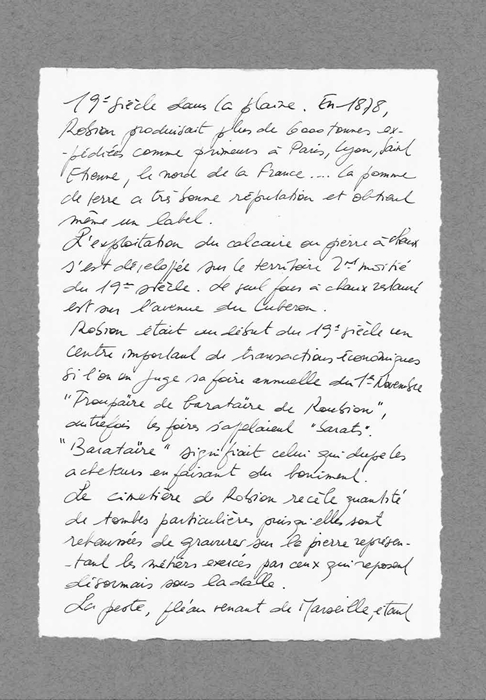 19e siècle dans la plaine. En 1878,
Robion produisait plus de 6000 tonnes ex-
-pédiées comme primeurs à Paris, Lyon, Saint
Etienne, le nord de la France.... La pomme
de terre a très bonne réputation et obtient
même un label.
L'exploitation du calcaire ou pierre à chaux
s'est développée sur le territoire 2nd moitié
du 19e siècle. Le seul four à chaux restauré
est sur l'avenue du Luberon.
Robion était au début du 19e siècle un
centre important de transactions économiques
si l'on en juge sa foire annuelle du 1er Novembre
"Troupaïre de barataïre de Roubion",
autrefois les foires s'apelaient "barats".
"Barataïre" signifiait celui qui dupe les
acheteurs en faisant du boniment.
Le cimetière de Robion recèle quantité
de tombes particulières puisqu'elles sont
rehaussées de gravures sur la pierre représen-
-tant les métiers exercés par ceux qui reposent
désormais sous la dalle.
La peste, fléau venant de Marseille, étant